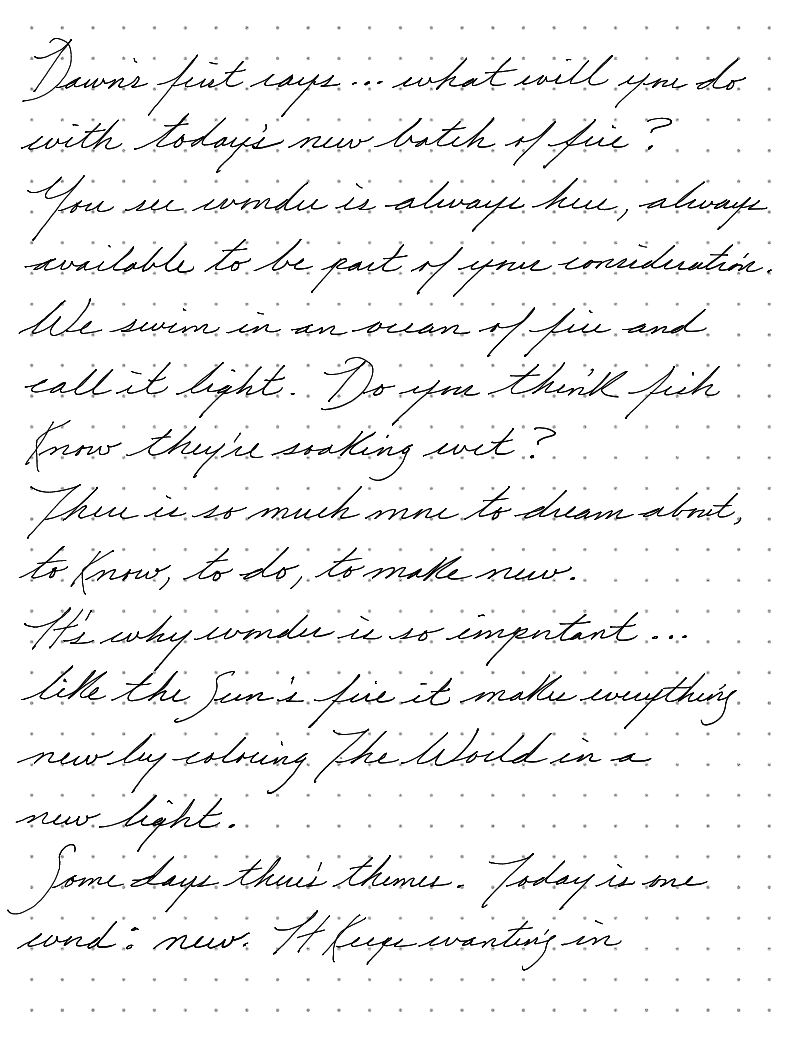 Dawn's first rays... what will you do
with today's new batch of fire?
You see wonder is always here, always
available to be part of your consideration.
We swim in an ocean of fire and
call it light. Do you think fish
Know they're soaking wet?
There is so much more to dream about,
to Know, to do, to make new.
It's why wonder is so important...
like the Sun's fire it makes everything
new by coloring The World in a
new light.
Some days there's themes. Today is one
word: new. It Keeps wanting in